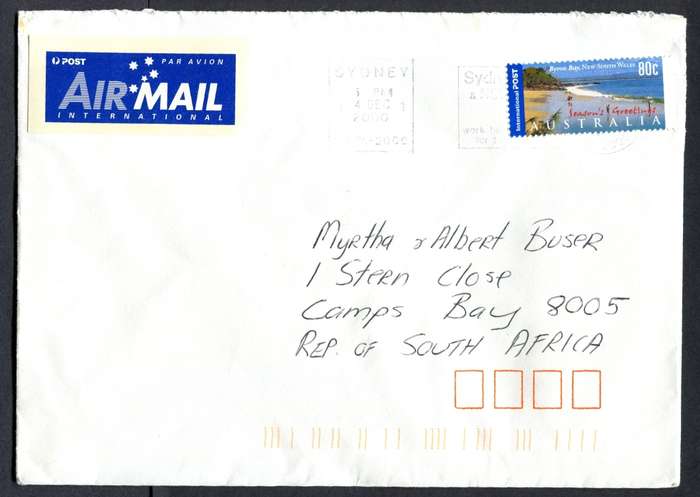 POST PAR AVION
AIR MAIL
INTERNATIONAL
SYDNEY
4 DEC
2000
Sydn
&
work
for
International POST
Byron Bay, New South Wales
80c
Season's Greetings
AUSTRALIA
Myrtha & Albert Buser
1 Stern Close
Camps Bay 8005
REP. OF SOUTH AFRICA